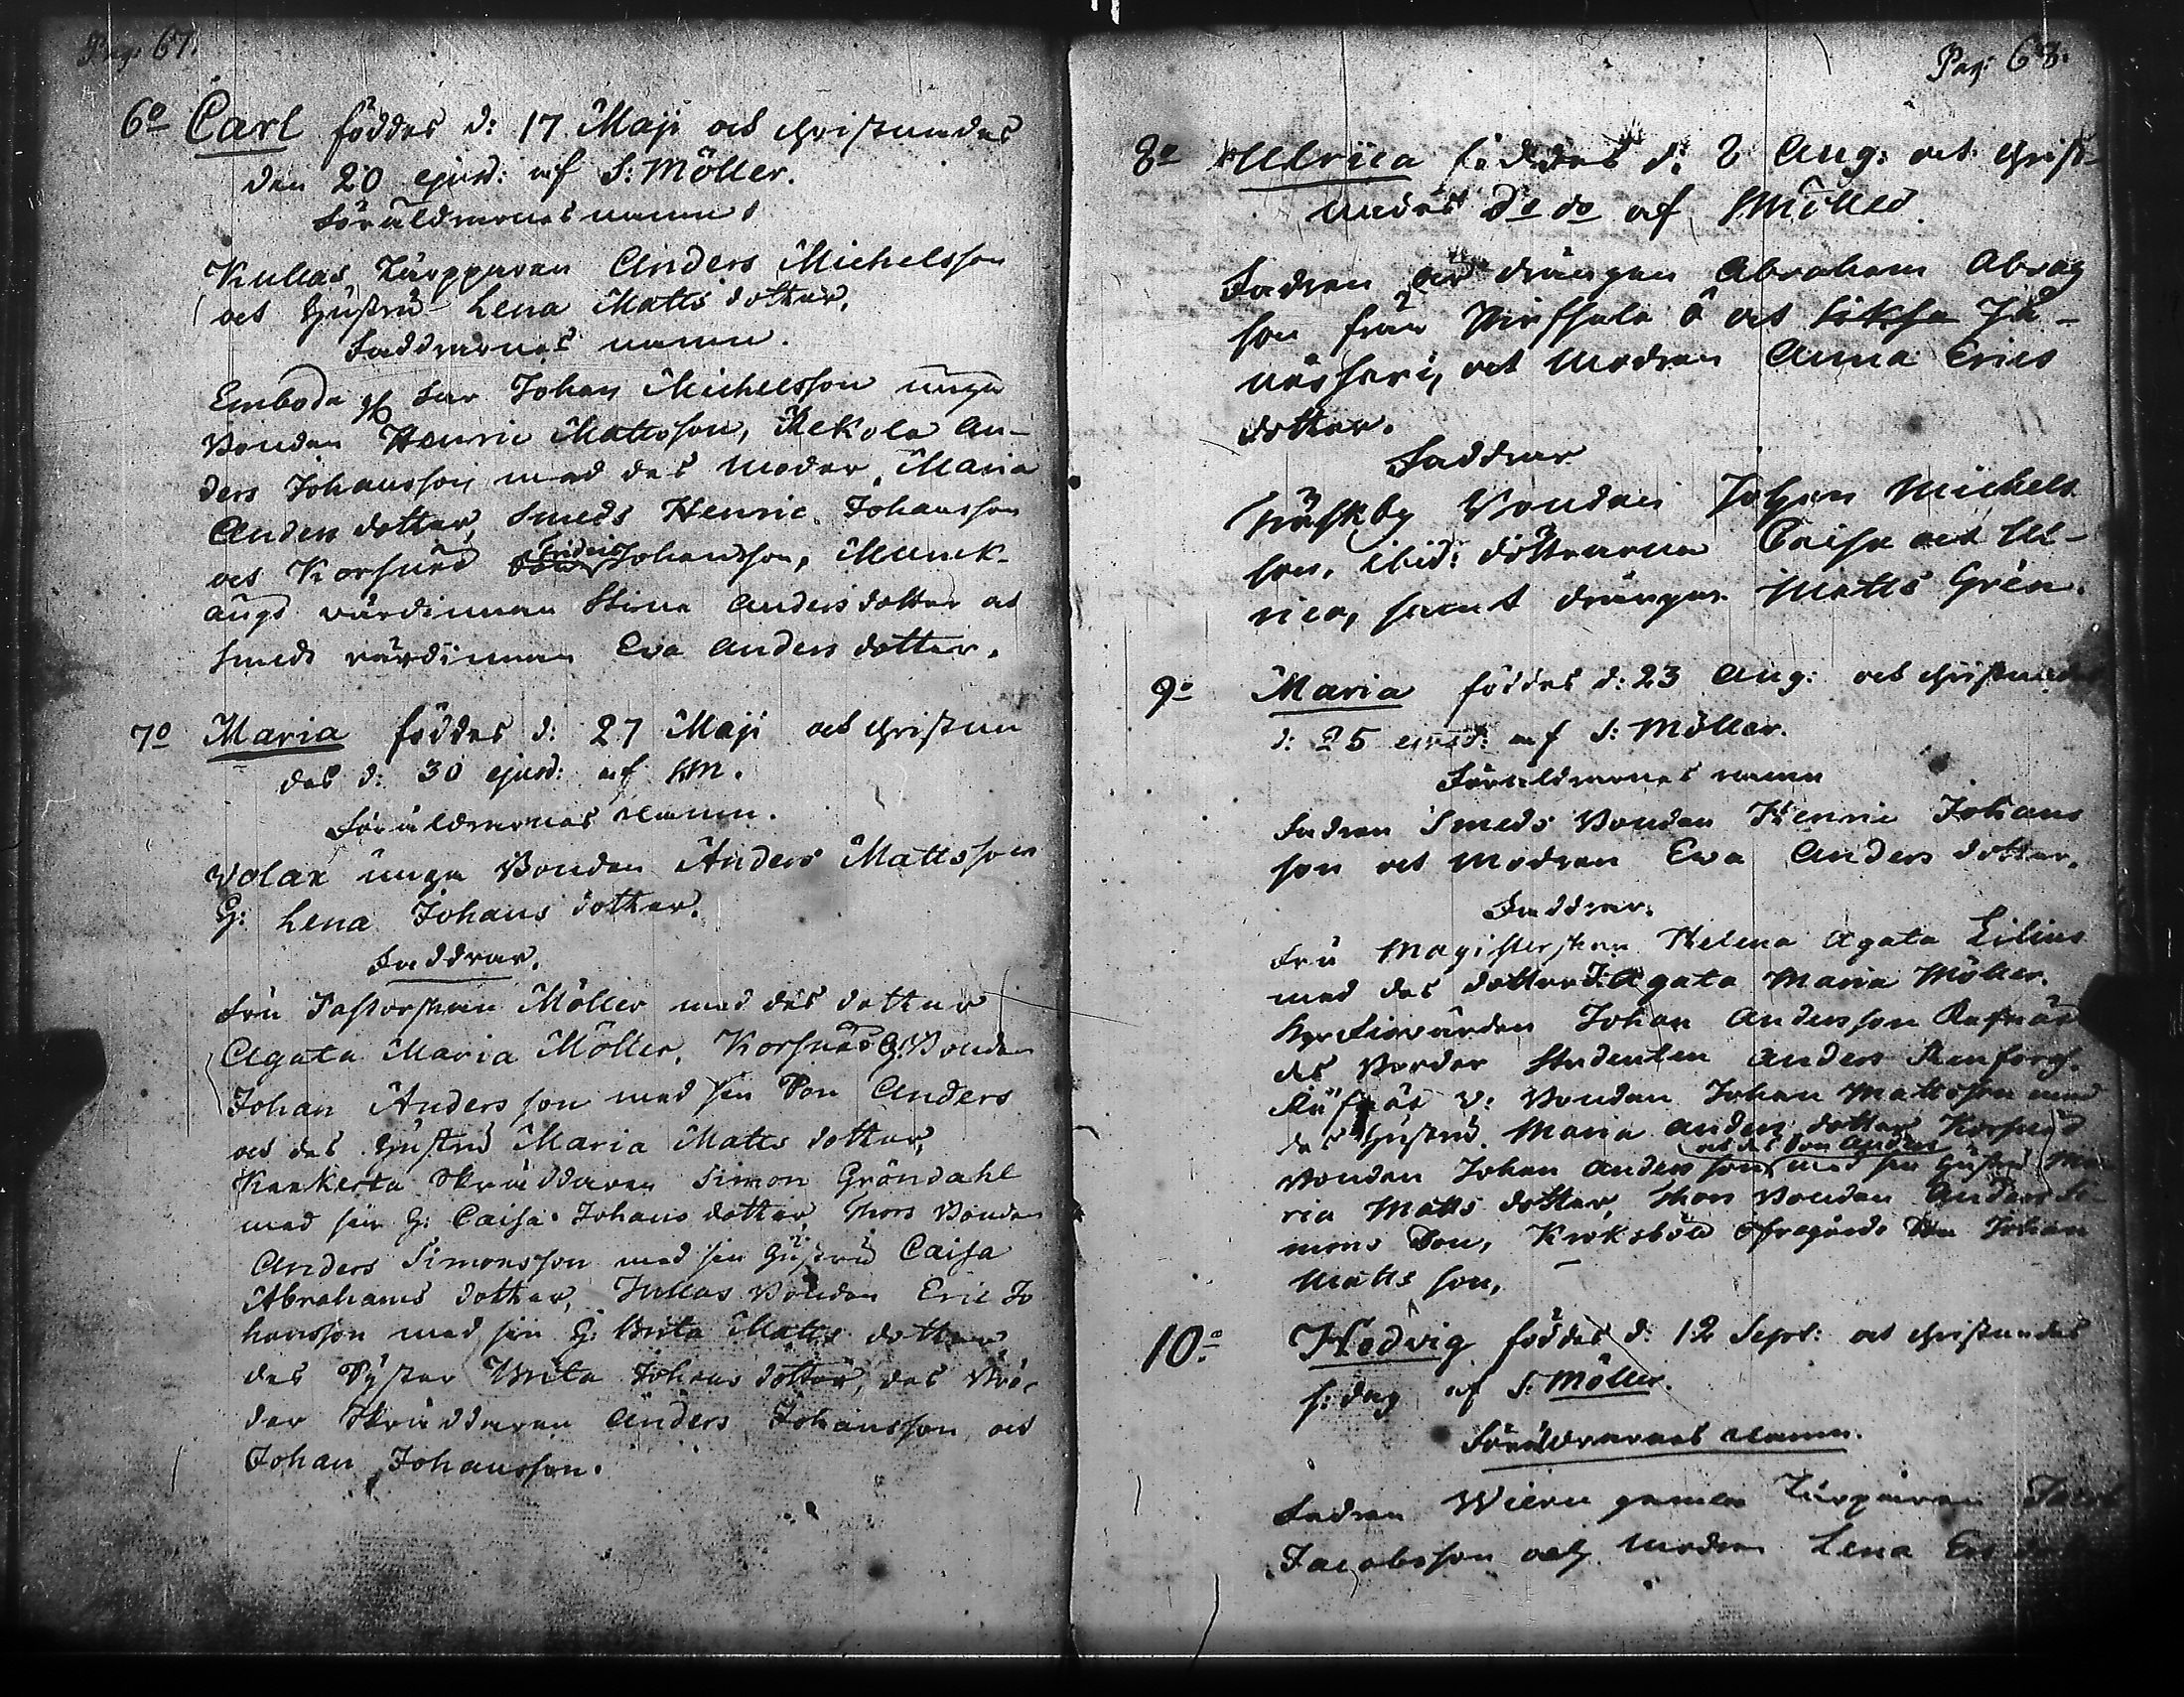 Pag: 67.
6o Carl föddes d: 17 Maji och christnades
den 20 ejusd: af S: Möller.
Föräldrarnas namn.
Kullas Torpparen Anders Michelsson
och Hustru Lena Matts dotter.
Faddrarnas namn.
Emboda Johan Michelsson unga
Bonden Henric Mattsson, An-
ders Johansson med des Moder Maria
Anders dotter, Smeds Henric Johansson
och Korsnäs Fridric Johansson, Munck-
ängs värdinnan Stina Anders dotter och
Smeds värdinnan Eva Anders dotter.
7o Maria föddes d: 27 Maji och christna
des d: 30 ejusd: af SM.
Föräldrarnas Namn.
Volax unga Bonden Anders Mattsson
H: Lena Johans dotter.
Faddrar.
Fru Pastorskan Möller med des dotter
Agata Maria Möller, Korsnäs G: Bonden
Johan Andersson med sin Son Anders
och des Hustru Maria Matts dotter,
Skräddaren Simon Gröndahl
med sin H: Caisa Johans dotter, Thors Bonden
Anders Simonsson med sin Hustru Caisa
Abrahams dotter, Jullas Bonden Eric Jo
hansson med sin H: Brita Matts dotter,
des Syster Brita Johans dotter, des Bro-
der Skräddaren Anders Johansson och
Johan Johansson.
Pag: 68.
8o Ulrica föddes d: 8 Aug: och christ-
nades do do af SMöller.
Fadren är drängen Abraham Abrah
son från ö och
och Modren Anna Erics
dotter.
Faddrar
Bonden Johan Michels
son, ibid: döttrarna Caisa och Ul-
rica, samt drängen Matts Grén.
9o Maria föddes d: 23 Aug: och christnades
d: 25 ejusd: af S: Möller.
Föräldrarnas namn
Fadren Smeds Bonden Henric Johans
son och Modren Eva Anders dotter.
Faddrar.
Fru Magisterskan Helena Agata Lilius
med des dotter Agata Maria Möller.
Johan Andersson
des Broder Studenten Anders
v: Bonden Johan Mattsson med
des Hustru Maria Anders dotter Korsnäs
och des Son Anders
Bonden Johan Andersson med sin Hustru Ma
ria Matts dotter, Thors Bonden Anders Si
mons Son, Johan
Matts son,
10o Hedvig föddes d: 12 Sept: och christnades
s: dag af S: Möller.
Föräldrarnas Namn.
Fadren gamla Torparen Jacob
Jacobsson och Modren Lena